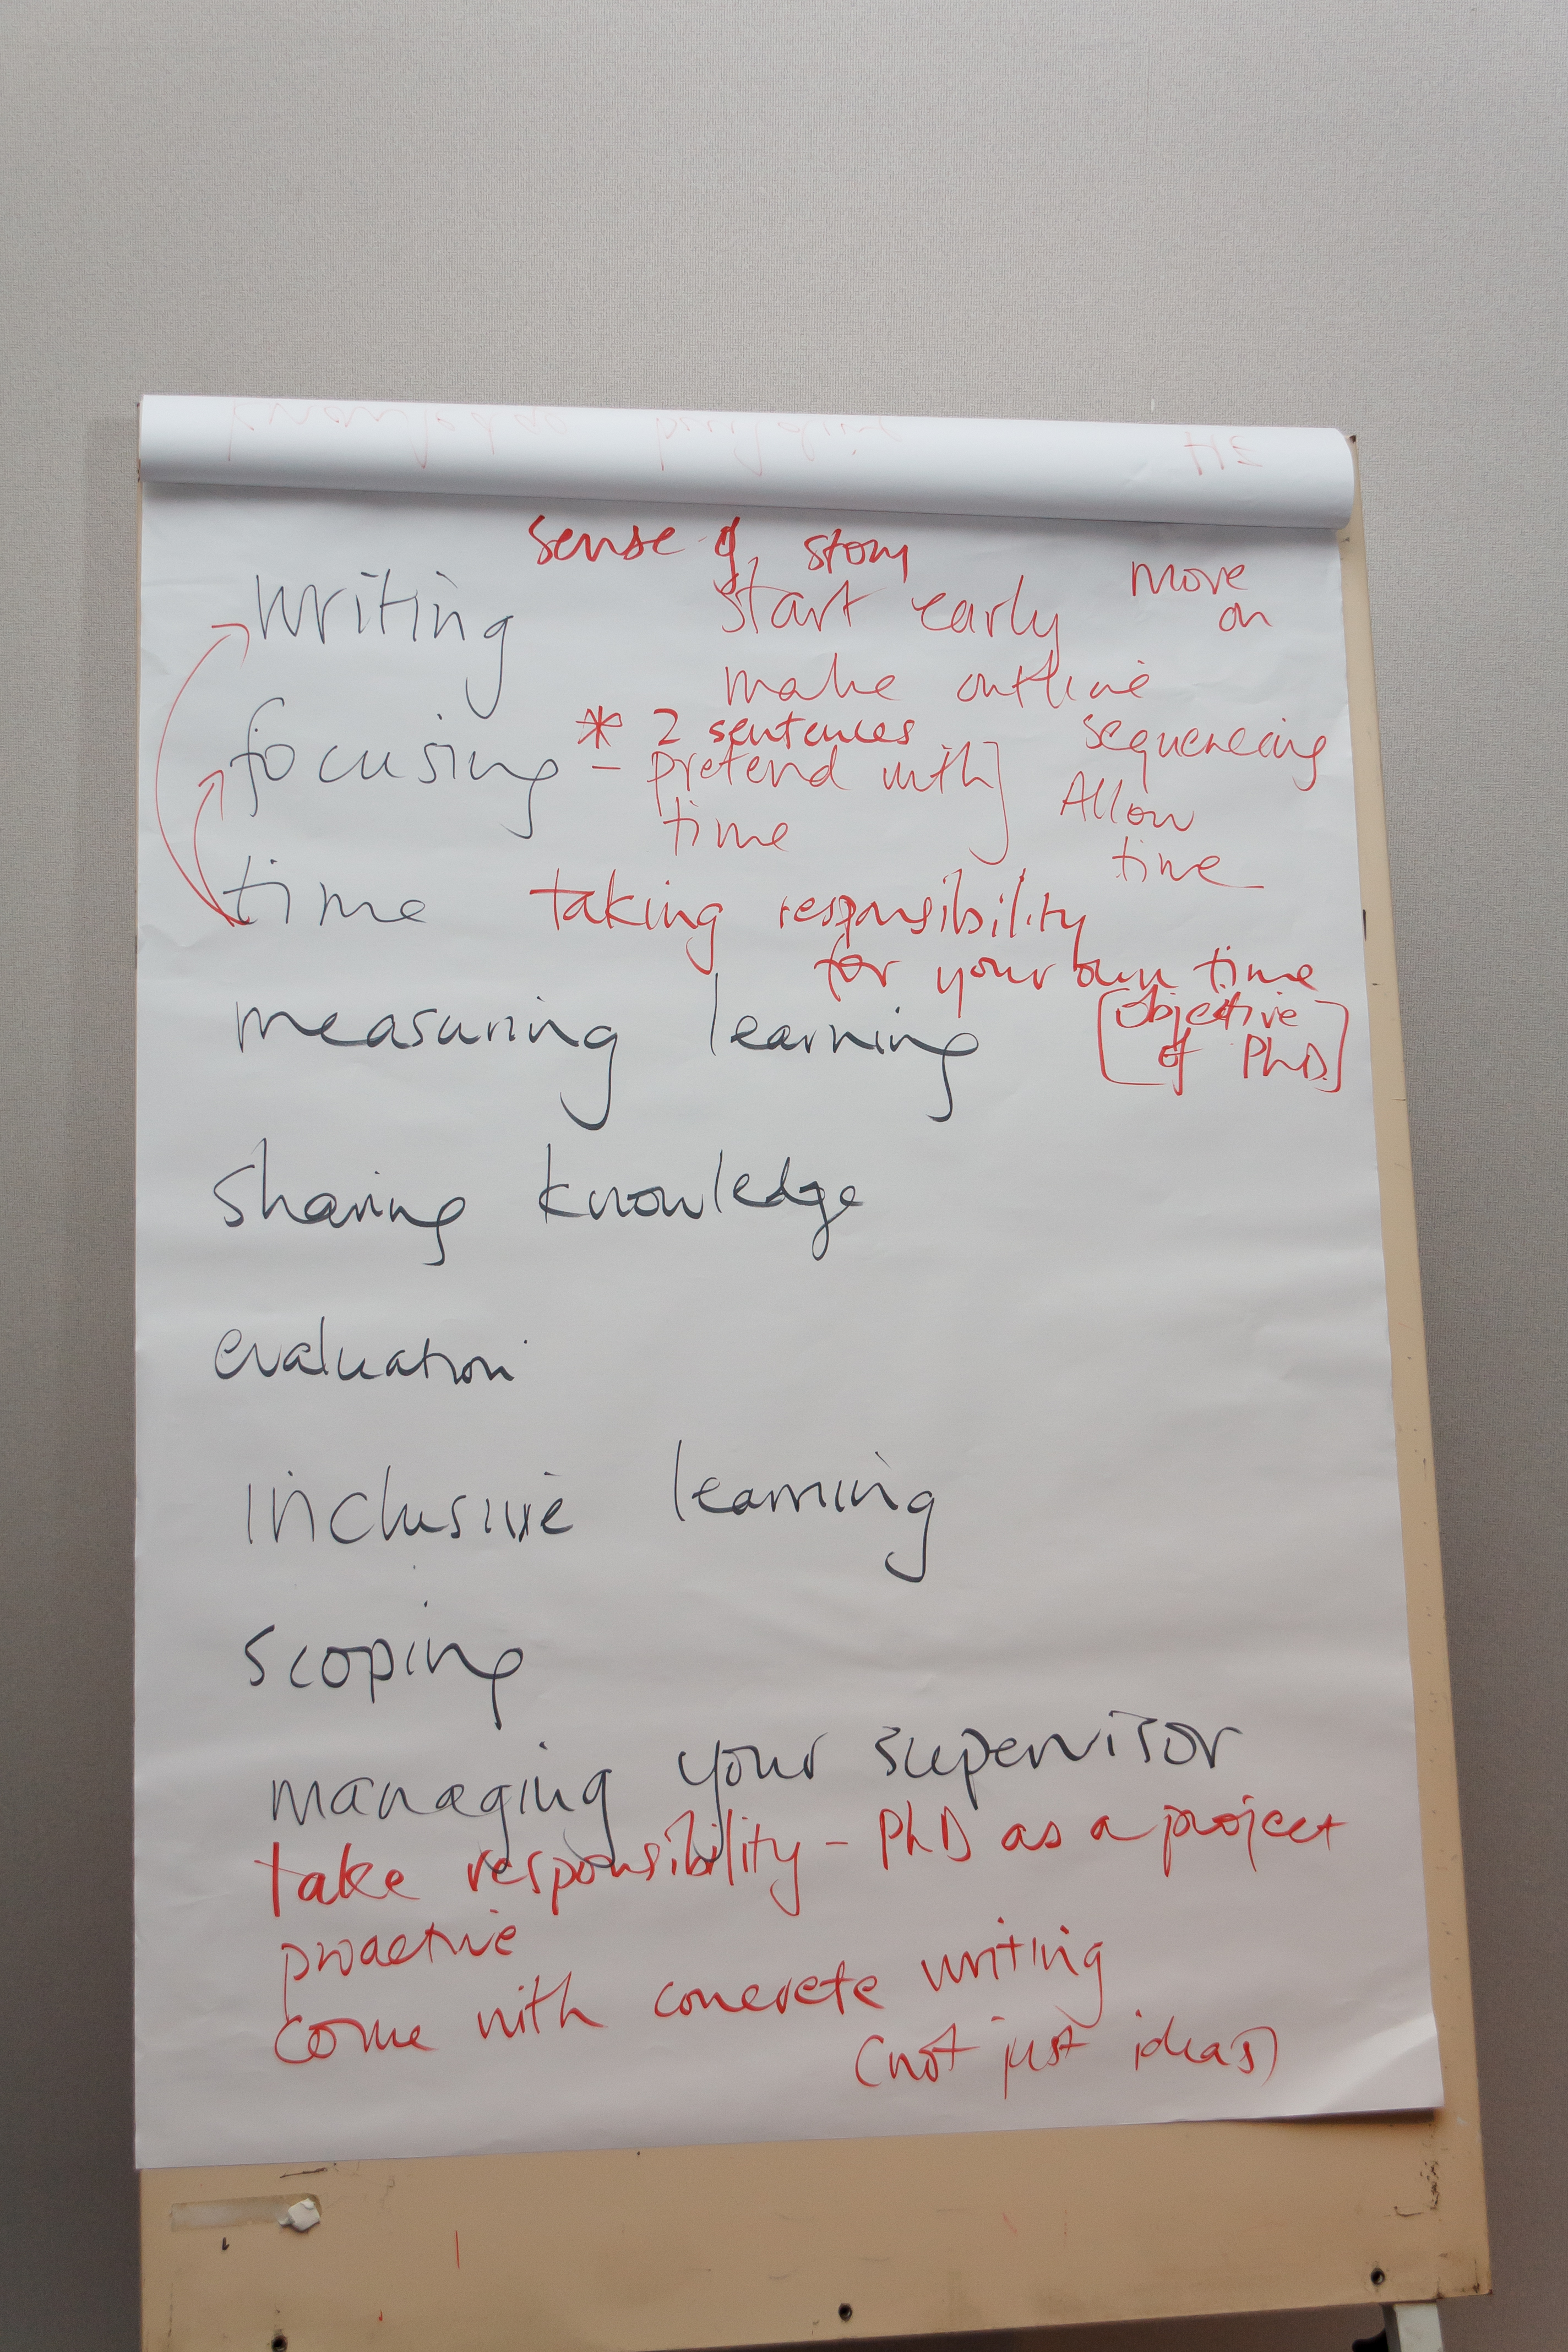 sense of story
writing
start early
move
on
make outline
focusing
* 2 sentences
- pretend with
time
sequencing
Allow
time
time
taking responsibility
for your own time
measuring learning
[Objective
of PhD]
sharing knowledge
evaluation
inclusive learning
scoping
managing your supervisor
take responsibility - PhD as a project
proactive
come with concrete writing
(not just ideas)